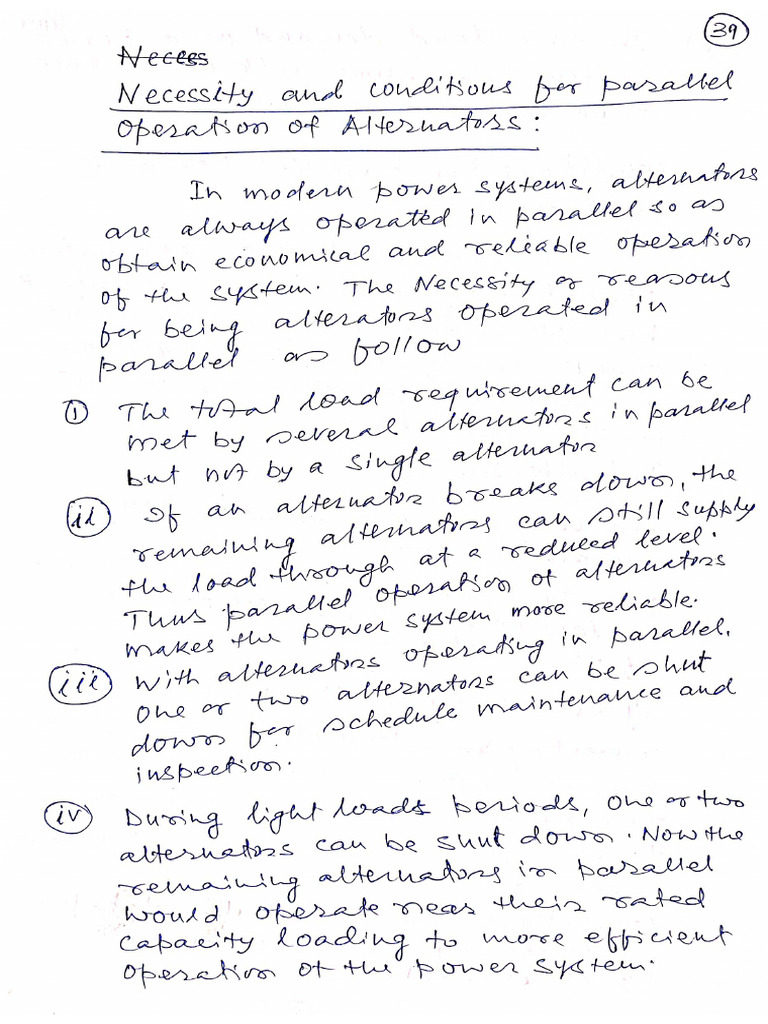 39
Necess
Necessity and conditions for parallel
Operation of Alternators:
In modern power systems, alternators
are always operated in parallel so as
obtain economical and reliable operation
of the system. The Necessity or reasons
for being alterators operated in
parallel as follow
i The total load requirement can be
met by several alternators in parallel
but not by a single alternator
ii If an alternator breaks down, the
remaining alternators can still supply
the load through at a reduced level.
Thus parallel operation of alternators
makes the power system more reliable.
iii With alternators operating in parallel.
One or two alternators can be shut
down for schedule maintenance and
inspection.
iv During light loads periods, one or two
alternators can be shut down. Now the
remaining alternators in parallel
would operate near their rated
capacity loading to more efficient
operation of the power system.